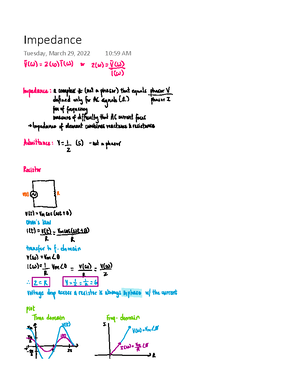 Impedance
Tuesday, March 29, 2022 10:59 AM
Ṽ(ω) = Z(ω) Ĩ(ω) or Z(ω) = Ṽ(ω)
Ĩ(ω)
Impedance: a complex # (not a phasor) that equals phasor V
defined only for AC signals (Ω) phasor I
fxn of frequency
measure of difficulty that AC current faces
→ Impedance of element combines reactance & resistance
Admittance: Y = 1 (S) - not a phasor
Z
Resistor
R
V(t) = Vm cos(ωt + θ)
Ohm's law
i(t) = V(t) = Vm cos(ωt + θ)
R R
transfer to f-domain
V(ω) = Vm ∠θ
I(ω) = 1 Vm ∠θ = V(ω) = V(ω)
R R Z
∴ Z = R Y = 1 = 1 = G
Z R
voltage drop across a resistor is always in phase w/ the current
plot
Time domain Freq-domain
V(t)
V(ω) = Vm∠θ